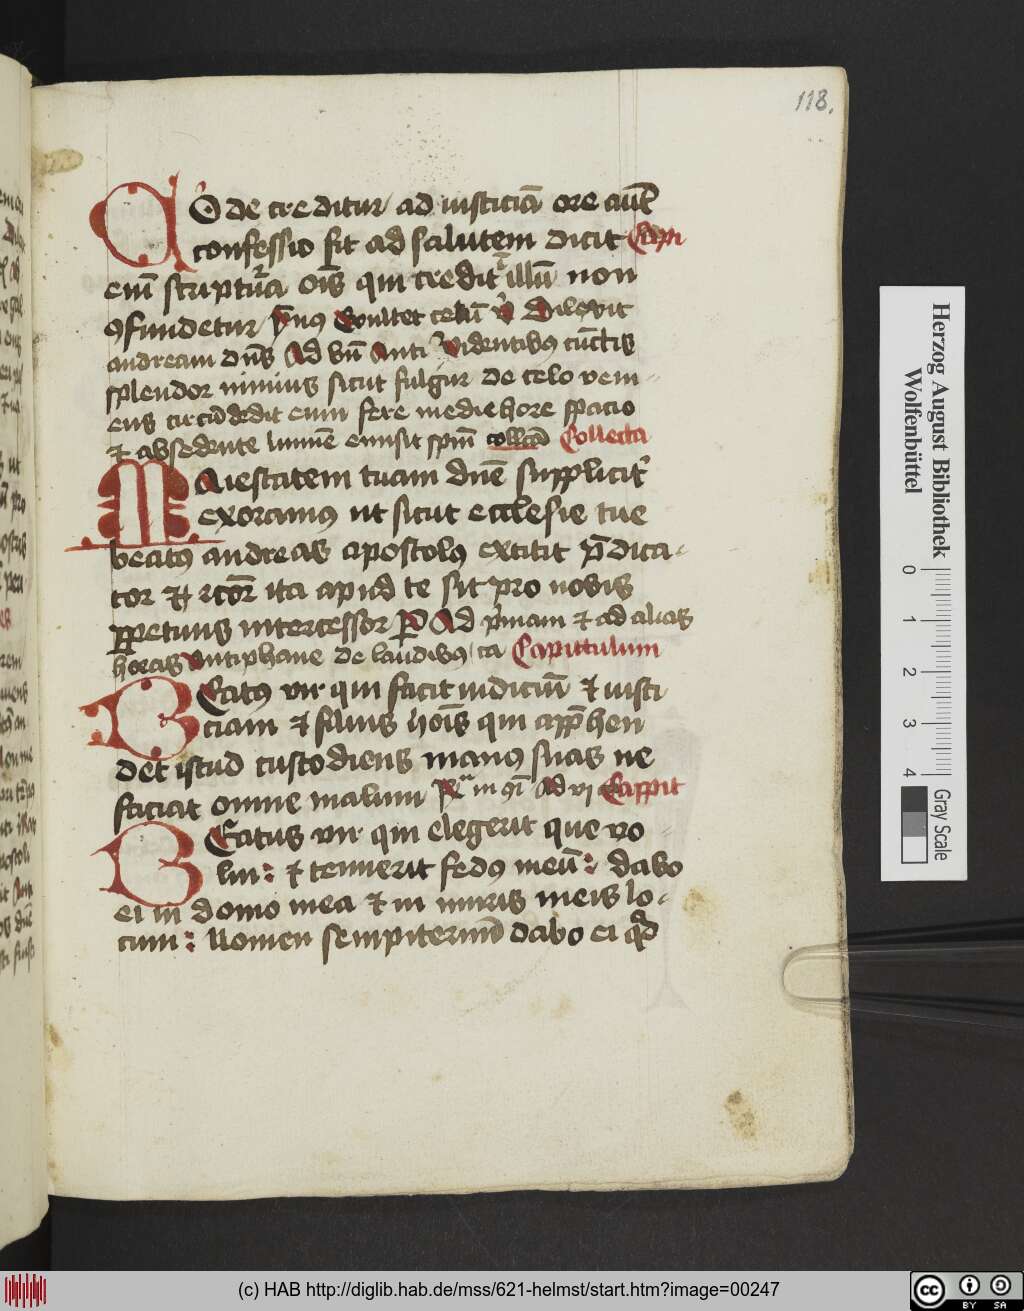 118.
COꝛde creditur ad iusticiā ore aūt
confessio fit ad salutem dicit Capi
eni̅ scriptura oi̅s qui credit ī illū non
ꝯfundetur ymꝰ Exultet celū vꝰ Dilexit
andream dn̅s Ad vn̅ Anti Videntibꝰ cūctis
splendor nimius sicut fulgur de celo veni-
ens circūdedit eum fere medie hore spacio
⁊ absedente lumīe emisit spm̅ collcā Collecta
MAiestatem tuam dn̅e supplicit᷑
exoramus ut sicut ecclesie tue
beatus andreas apostolꝰ extitit p̅dica-
tor ⁊ rcor̅ ita apud te sit pro nobis
ꝑpetuus intercessor P Ad p͛mam ⁊ ad alias
horas Antiphane de laudibꝰ ca Capittulum
BEatꝰ vir qui facit iudiciū ⁊ iusti
ciam ⁊ filius hoi̅s qui app̅hen
det istud custodiens manꝰ suas ne
faciat omne malum ad vj Cappit
BEatus vir qui elegerit que vo-
lui: ⁊ tenuerit fedꝰ meū: dabo
ei in domo mea ⁊ in muris meis lo-
cum: Nomen sempiternū dabo ei qd̅
Herzog August Bibliothek
Wolfenbüttel
0 1 2 3 4
Gray Scale
(c) HAB http://diglib.hab.de/mss/621-helmst/start.htm?image=00247
cc BY SA